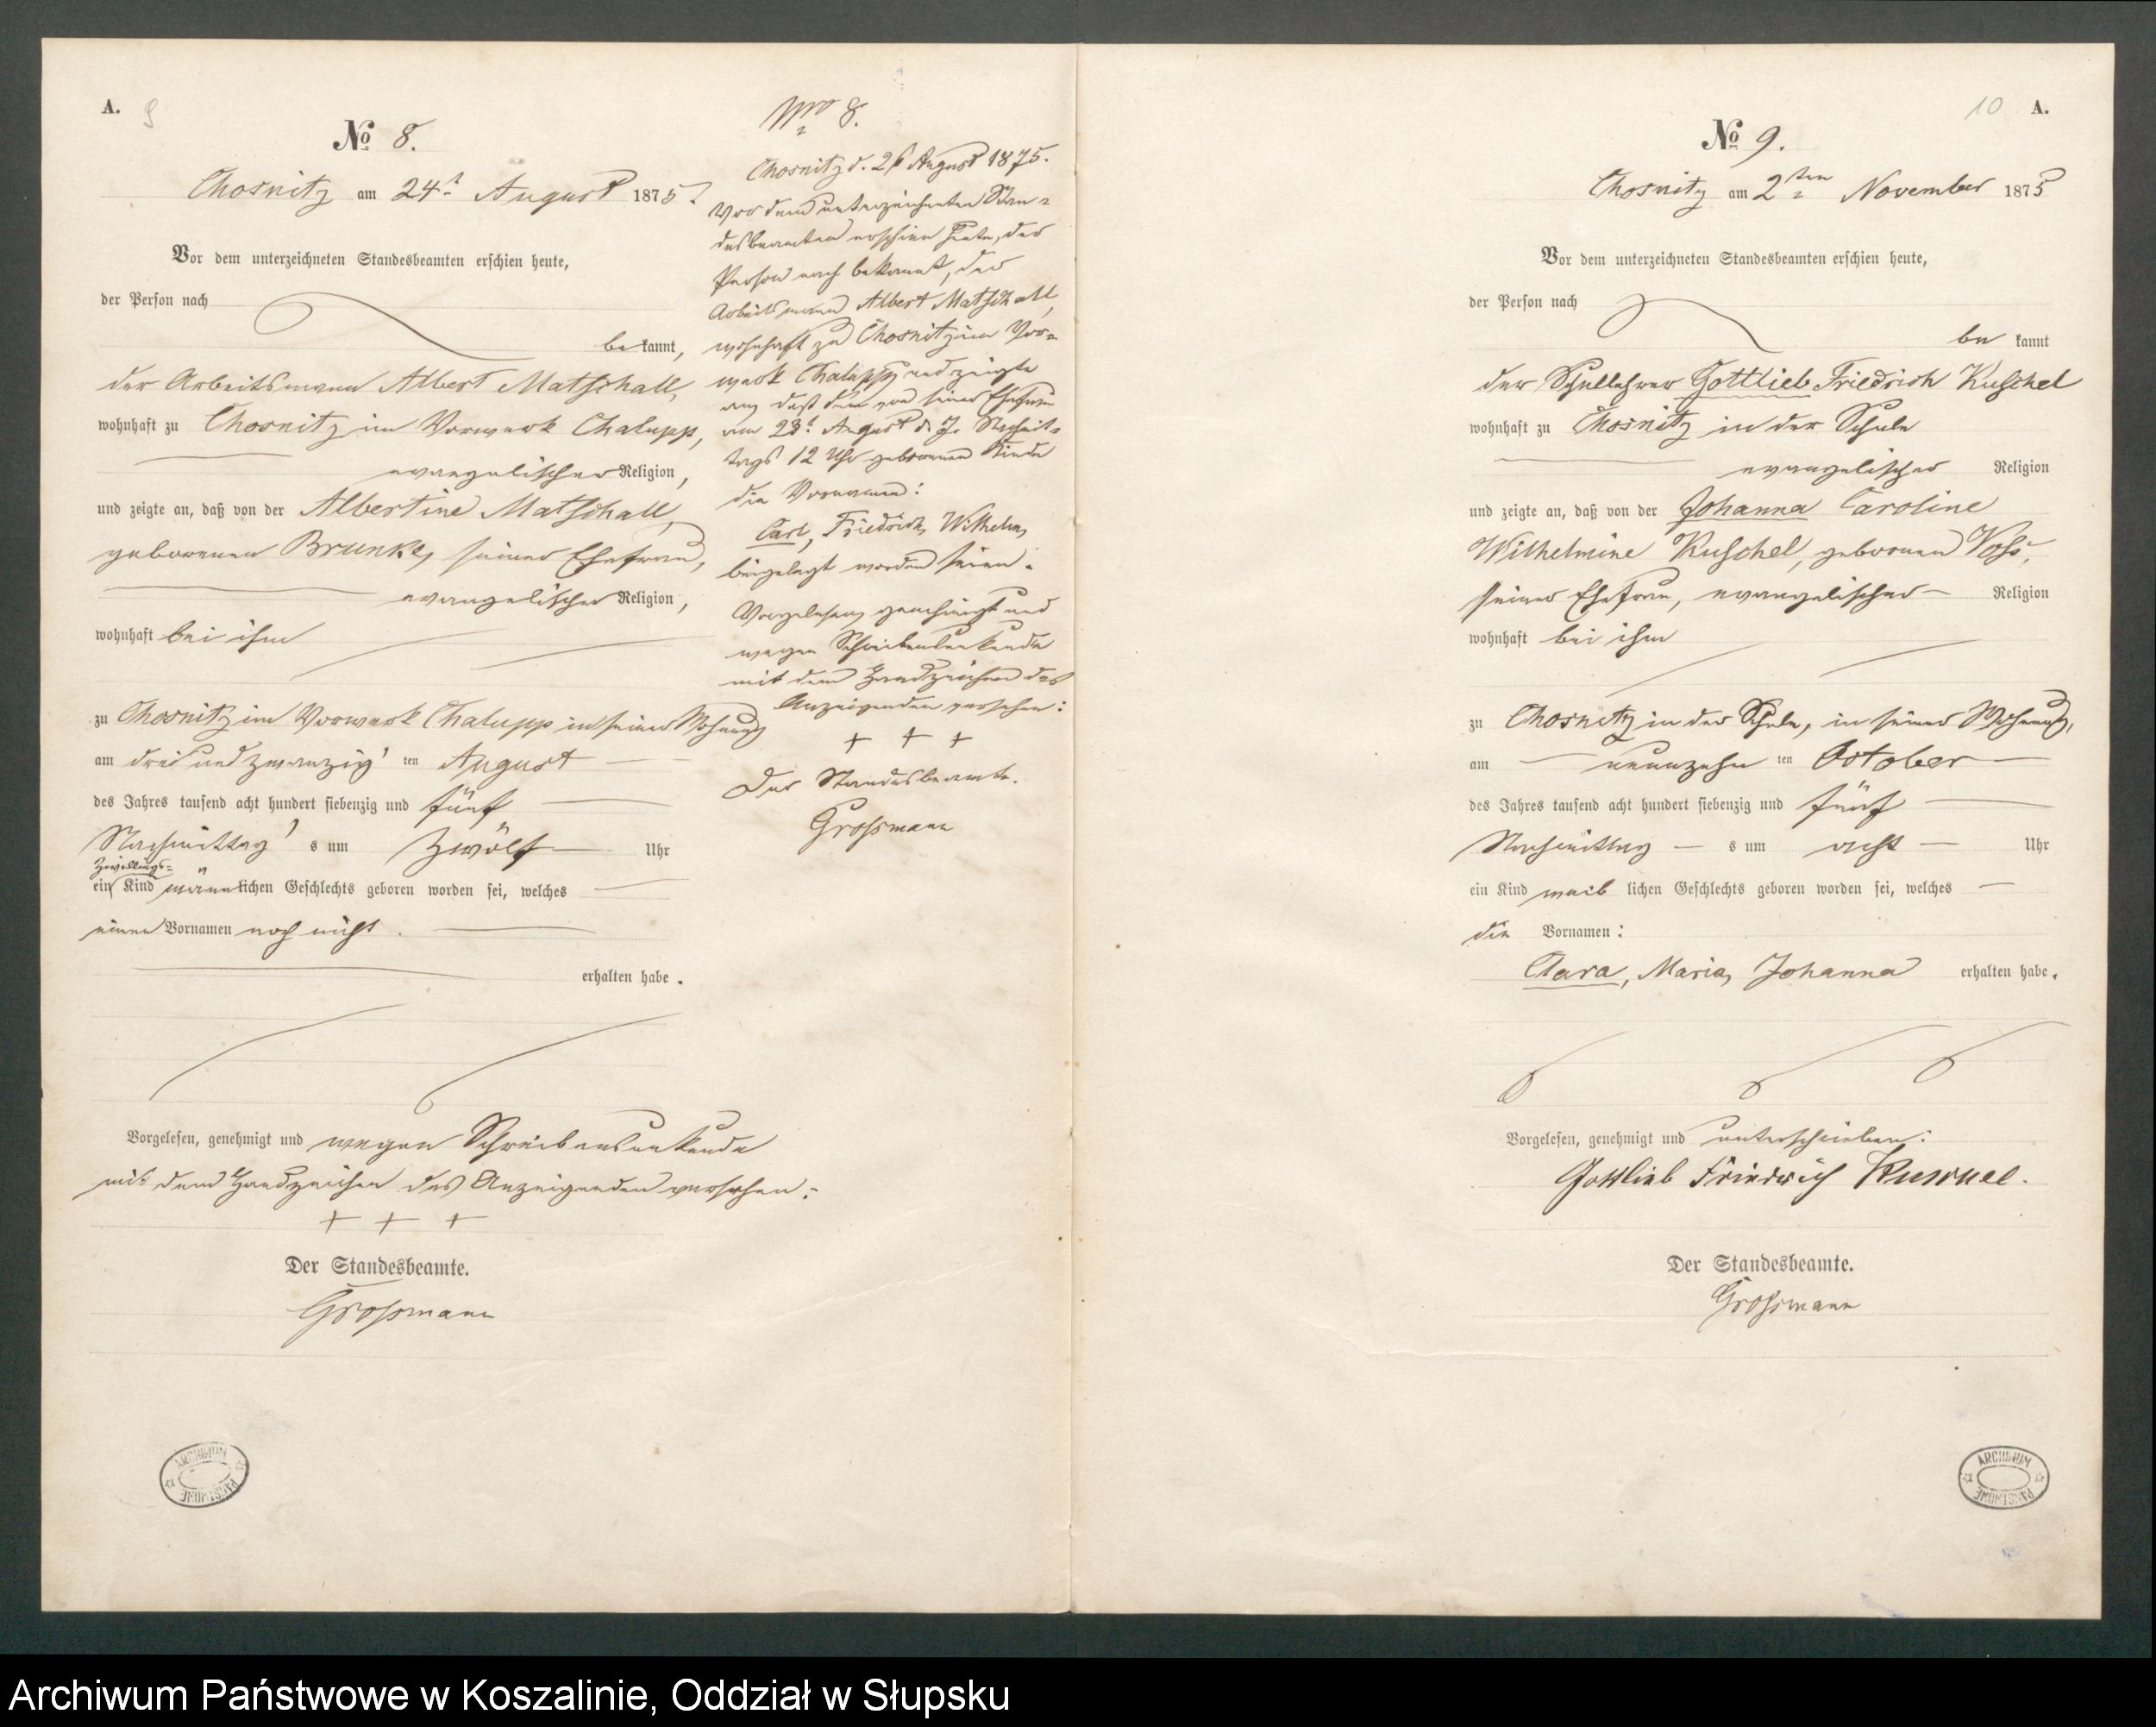 A. 9
No 8.
Chosnitz am 24t August 1875.
Vor dem unterzeichneten Standesbeamten erschien heute,
der Person nach
be kannt,
der Arbeitsmann Albert Matschall,
wohnhaft zu Chosnitz im Vorwerk Chalupp,
evangelischer Religion,
und zeigte an, daß von der Albertine Matschall,
geborenen Brunke, seiner Ehefrau,
evangelischer Religion,
wohnhaft bei ihm
zu Chosnitz im Vorwerk Chalupp in seiner Wohnung
am drei und zwanzig ten August
des Jahres tausend acht hundert siebenzig und fünf
Nachmittag s um Zwölf Uhr
Zwillings-
ein Kind männlichen Geschlechts geboren worden sei, welches
einen Vornamen noch nicht.
erhalten habe.
Vorgelesen, genehmigt und wegen Schreibensunkunde
mit dem Handzeichen des Anzeigenden versehen:
+ + +
Der Standesbeamte.
Grossmann
Nro 8.
Chosnitz d. August 1875.
Vor dem unterzeichneten Stan-
desbeamten erschien heute, der
Person nach bekannt, der
Arbeitsmann Albert Matschall,
wohnhaft zu Chosnitz im Vor-
werk Chalupp und zeigte
an, daß dem von seiner Ehefrau
am 23t August d. J. Nachmit-
tags 12 Uhr geborenen Kinde
die Vornamen:
Carl, Friedrich, Wilhelm,
beigelegt worden seien.
Vorgelesen, genehmigt und
wegen Schreibensunkunde
mit dem Handzeichen des
Anzeigenden versehen:
+ + +
Der Standesbeamte.
Grossmann
ARCHIWUM PAŃSTWOWE
10 A.
No 9.
Chosnitz am 2ten November 1875
Vor dem unterzeichneten Standesbeamten erschien heute,
der Person nach
be kannt
der Schullehrer Gottlieb Friedrich Kuschel
wohnhaft zu Chosnitz in der Schule
evangelischer Religion
und zeigte an, daß von der Johanna Caroline
Wilhelmine Kuschel, geborenen Voss,
seiner Ehefrau, evangelischer Religion
wohnhaft bei ihm
zu Chosnitz in der Schule, in seiner Wohnung,
am neunzehn ten October
des Jahres tausend acht hundert siebenzig und fünf
Nachmittag s um acht Uhr
ein Kind weib lichen Geschlechts geboren worden sei, welches
die Vornamen:
Clara, Maria, Johanna erhalten habe.
Vorgelesen, genehmigt und unterschrieben:
Gottlieb Friedrich Kuschel.
Der Standesbeamte.
Grossmann
ARCHIWUM PAŃSTWOWE
Archiwum Państwowe w Koszalinie, Oddział w Słupsku